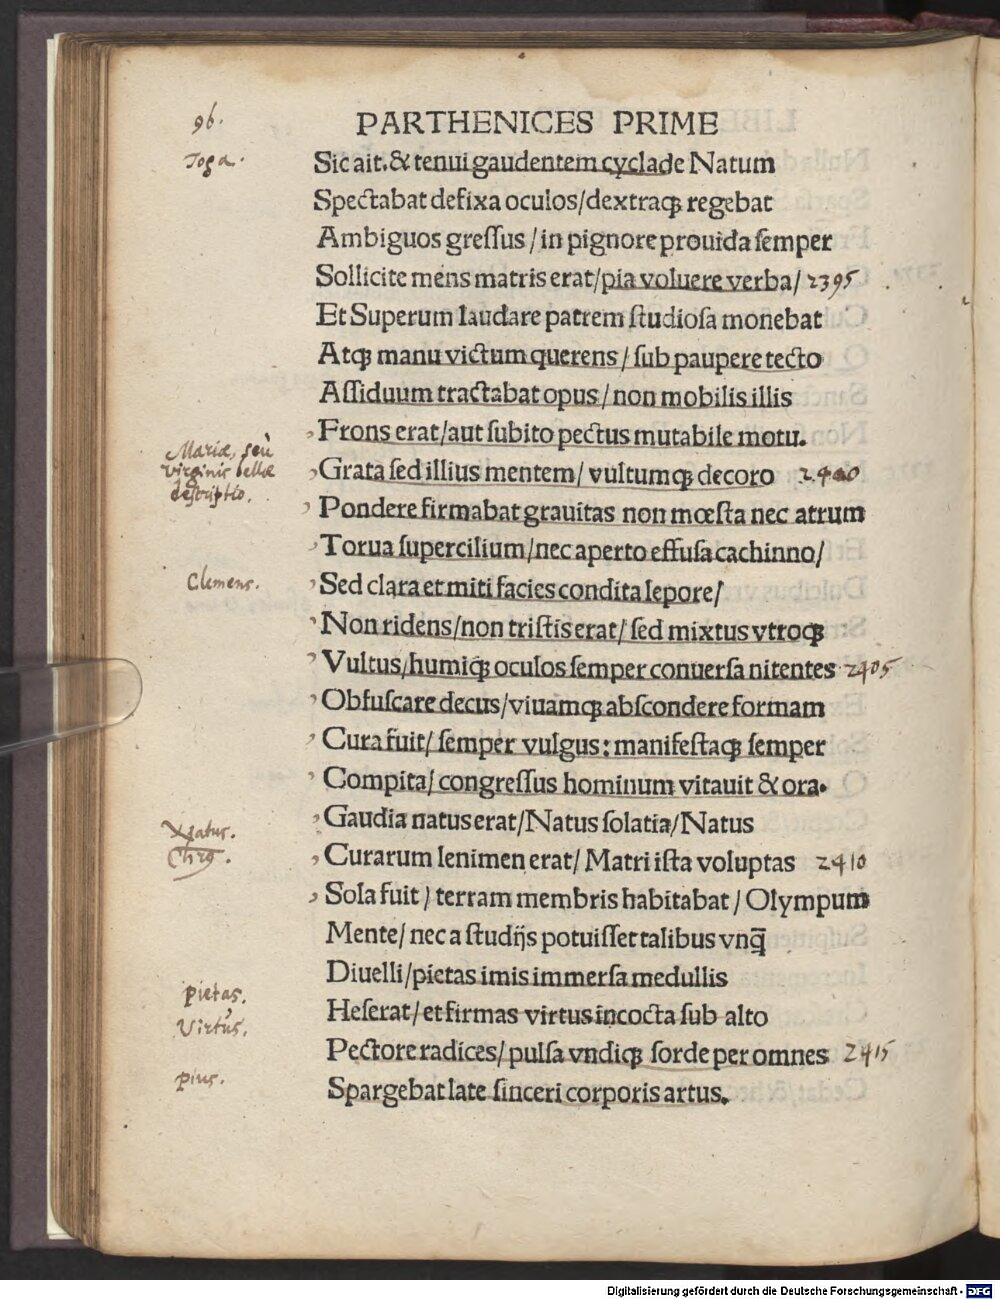 96.
PARTHENICES PRIME
Toga.
Sic ait.& tenui gaudentem cyclade Natum
Spectabat defixa oculos/dextraqꝫ regebat
Ambiguos greſſus/in pignore prouida ſemper
Sollicite mens matris erat/pia voluere verba/ 2395
Et Superum laudare patrem ſtudioſa monebat
Atqꝫ manu victum querens/ſub paupere tecto
Aſſiduum tractabat opus/non mobilis illis
Frons erat/aut ſubito pectus mutabile motu.
Mariæ, seu
virginis bellæ
descriptio.
Grata ſed illius mentem/vultumqꝫ decoro 2400
Pondere firmabat grauitas non mœſta nec atrum
Torua ſupercilium/nec aperto effuſa cachinno/
Clemens.
Sed clara et miti facies condita lepore/
Non ridens/non triſtis erat/ſed mixtus vtroqꝫ
Vultus/humiqꝫ oculos ſemper conuerſa nitentes 2405
Obfuſcare decus/viuamqꝫ abſcondere formam
Cura fuit/ſemper vulgus:manifeſtaqꝫ ſemper
Compita/congreſſus hominum vitauit & ora.
Gaudia natus erat/Natus ſolatia/Natus
Curarum lenimen erat/Matri iſta voluptas 2410
Sola fuit/terram membris habitabat/Olympum
Mente/nec a ſtudijs potuiſſet talibus vnq̄
Diuelli/pietas imis immerſa medullis
pietas.
Heſerat/et firmas virtus incocta ſub alto
Virtus.
Pectore radices/pulſa vndiqꝫ ſorde per omnes 2415
pius.
Spargebat late ſinceri corporis artus.
Digitalisierung gefördert durch die Deutsche Forschungsgemeinschaft - DFG